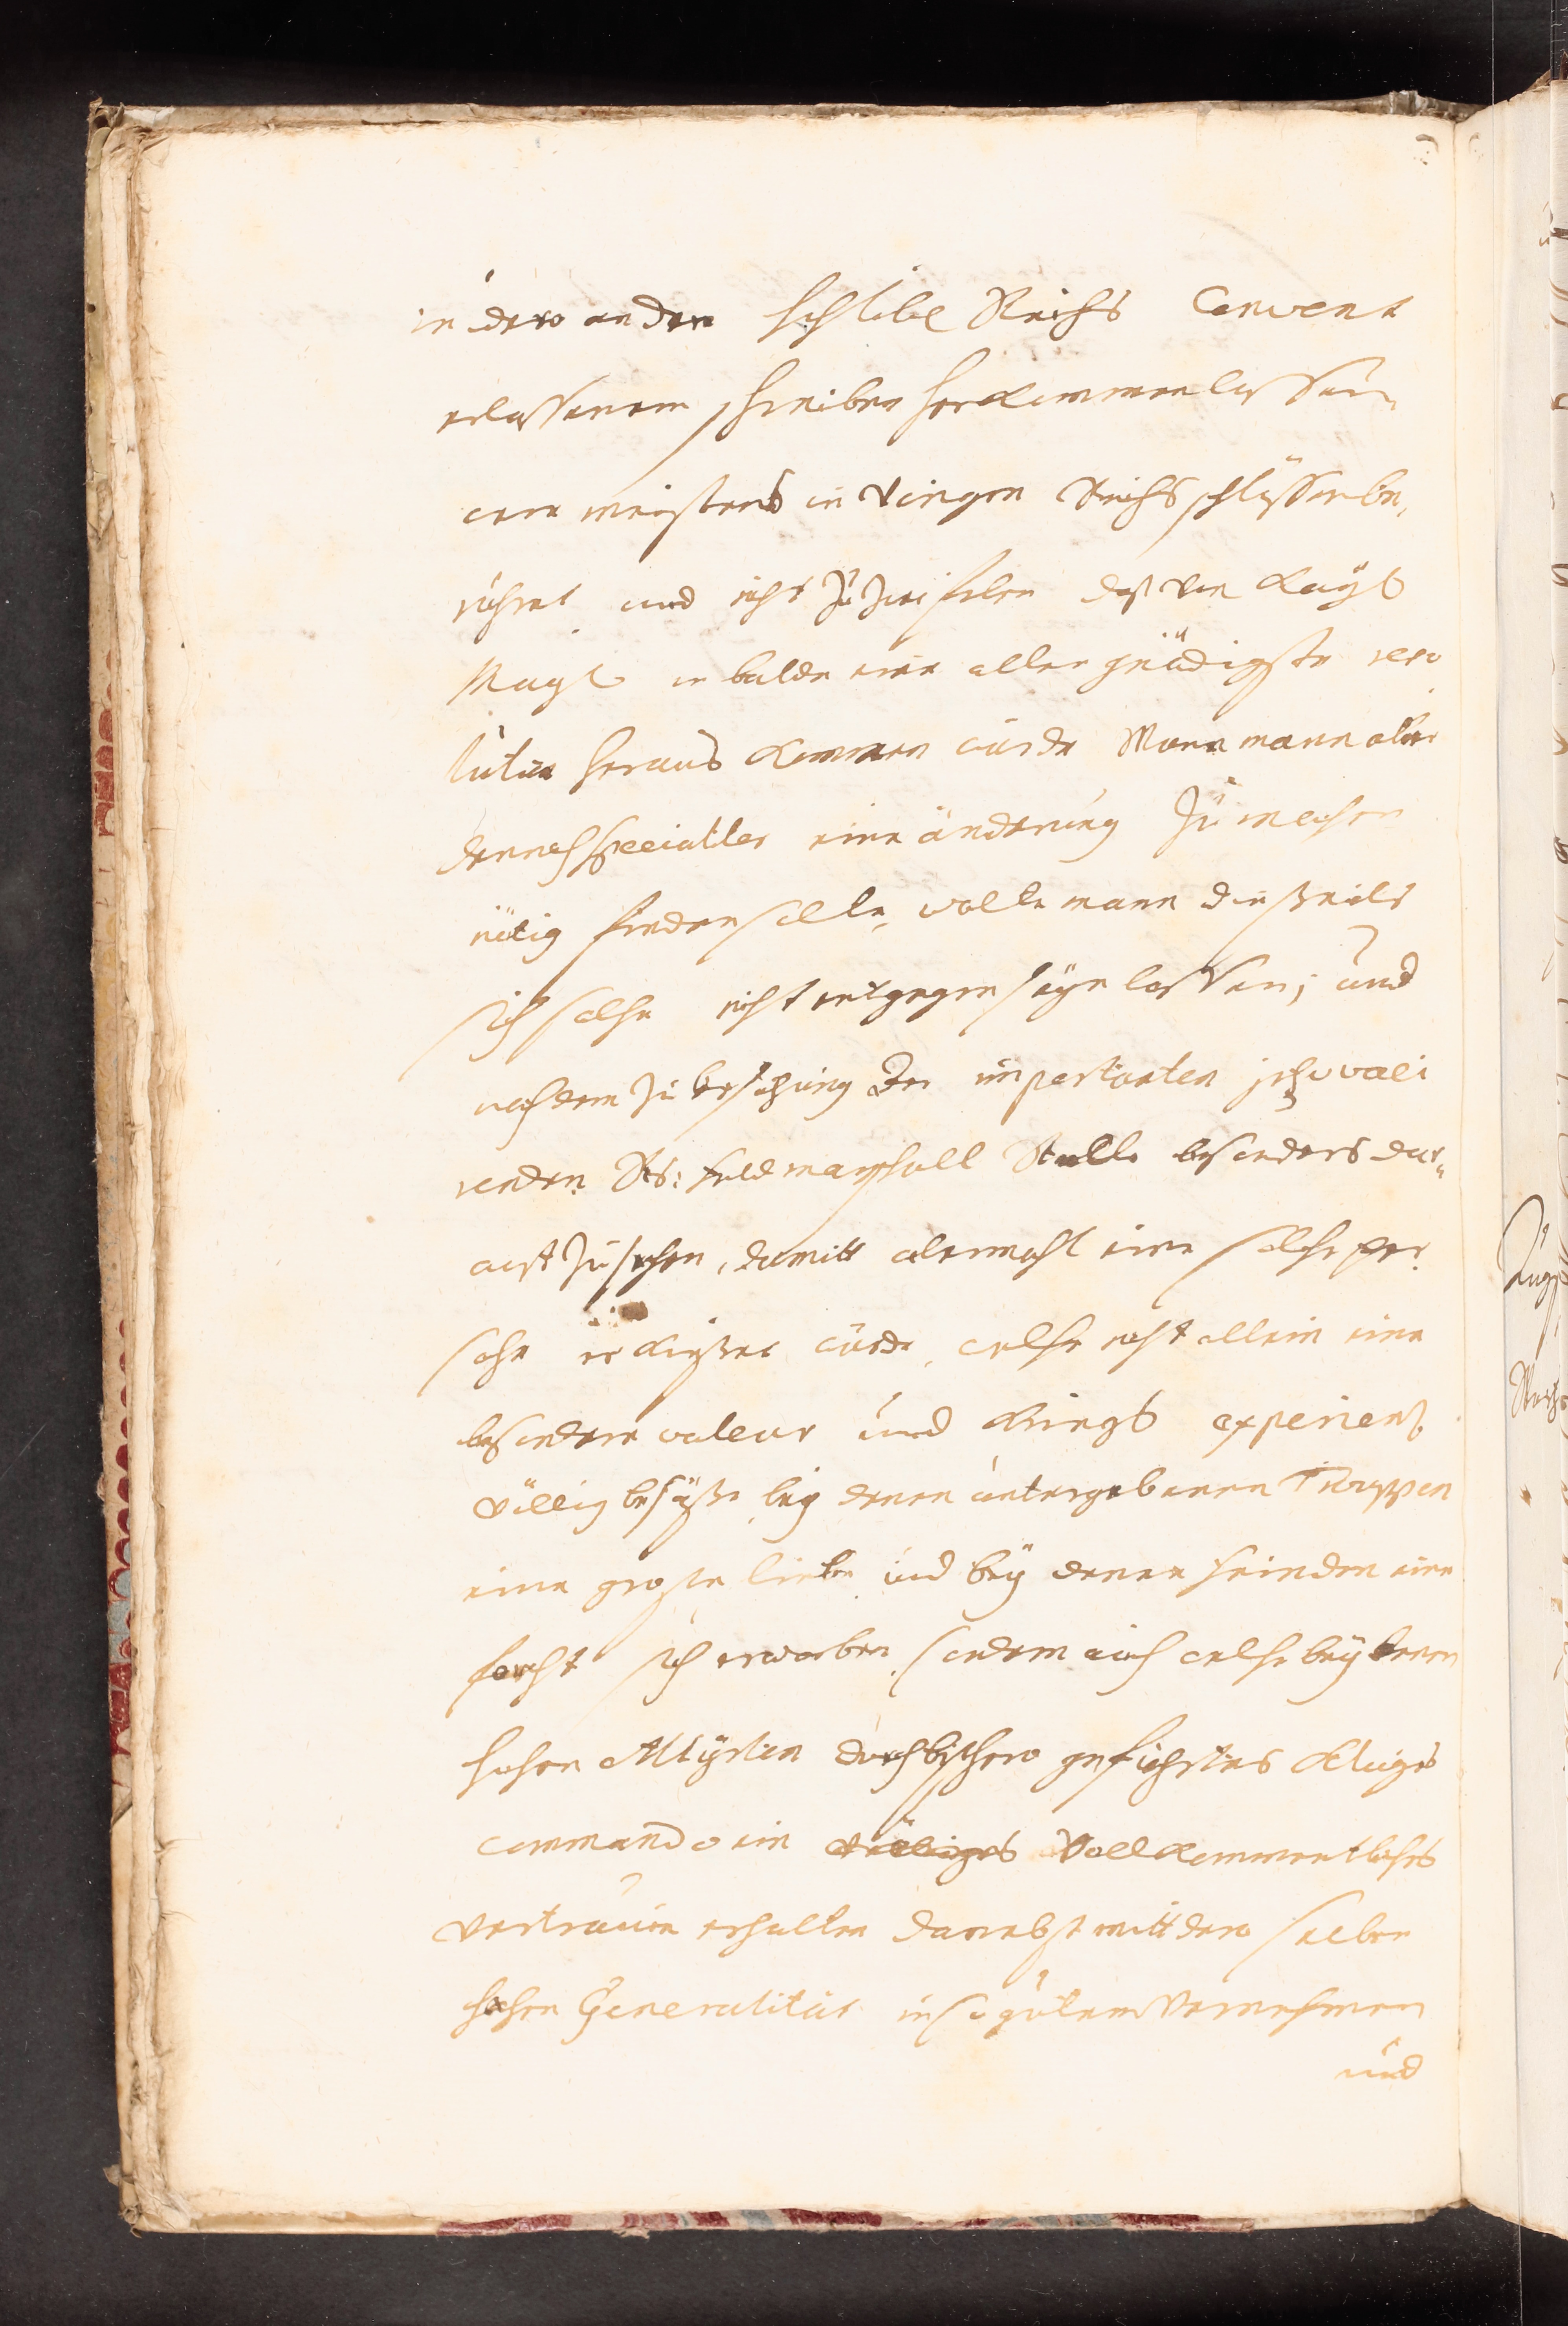 in dero an den hochlöbl Reichs Convent
erlassenem schreiben herkommen lassen
wären meistens in vorigen Reichs schlüssen be,
rühret und nicht zu zweifelen daß von Kayß
Mayt in balde eine aller gnädigste reso
lution heraus kommen würde Wann mann aber
dennoch specialiter eine änderung zu machen
nötig finden solte, wolte mann dießeits
sich solche nicht entgegen seyn lassen; und
nachdem zu besetzung der importanten jetzo vaci
renden Rs: feldmarschall Stelle besonders dar„
auf zu sehen, damitt abermahl eine solche per
sohn erkießet würde, welche nicht allein eine
besondere valeur und Kriegs experienz
völlig besäße bey denen untergebenen Trouppen
eine große liebe und bey denen feinden eine
forcht sich erworben, sondern auch welche bey denen
hohen Allyrten durch bißhero geführtes kluges
commando ein völliges Vollkommentliches
vertrauen erhalten danebst mitt dero selben
hohen Generalität in so gutem Vernehmen
und